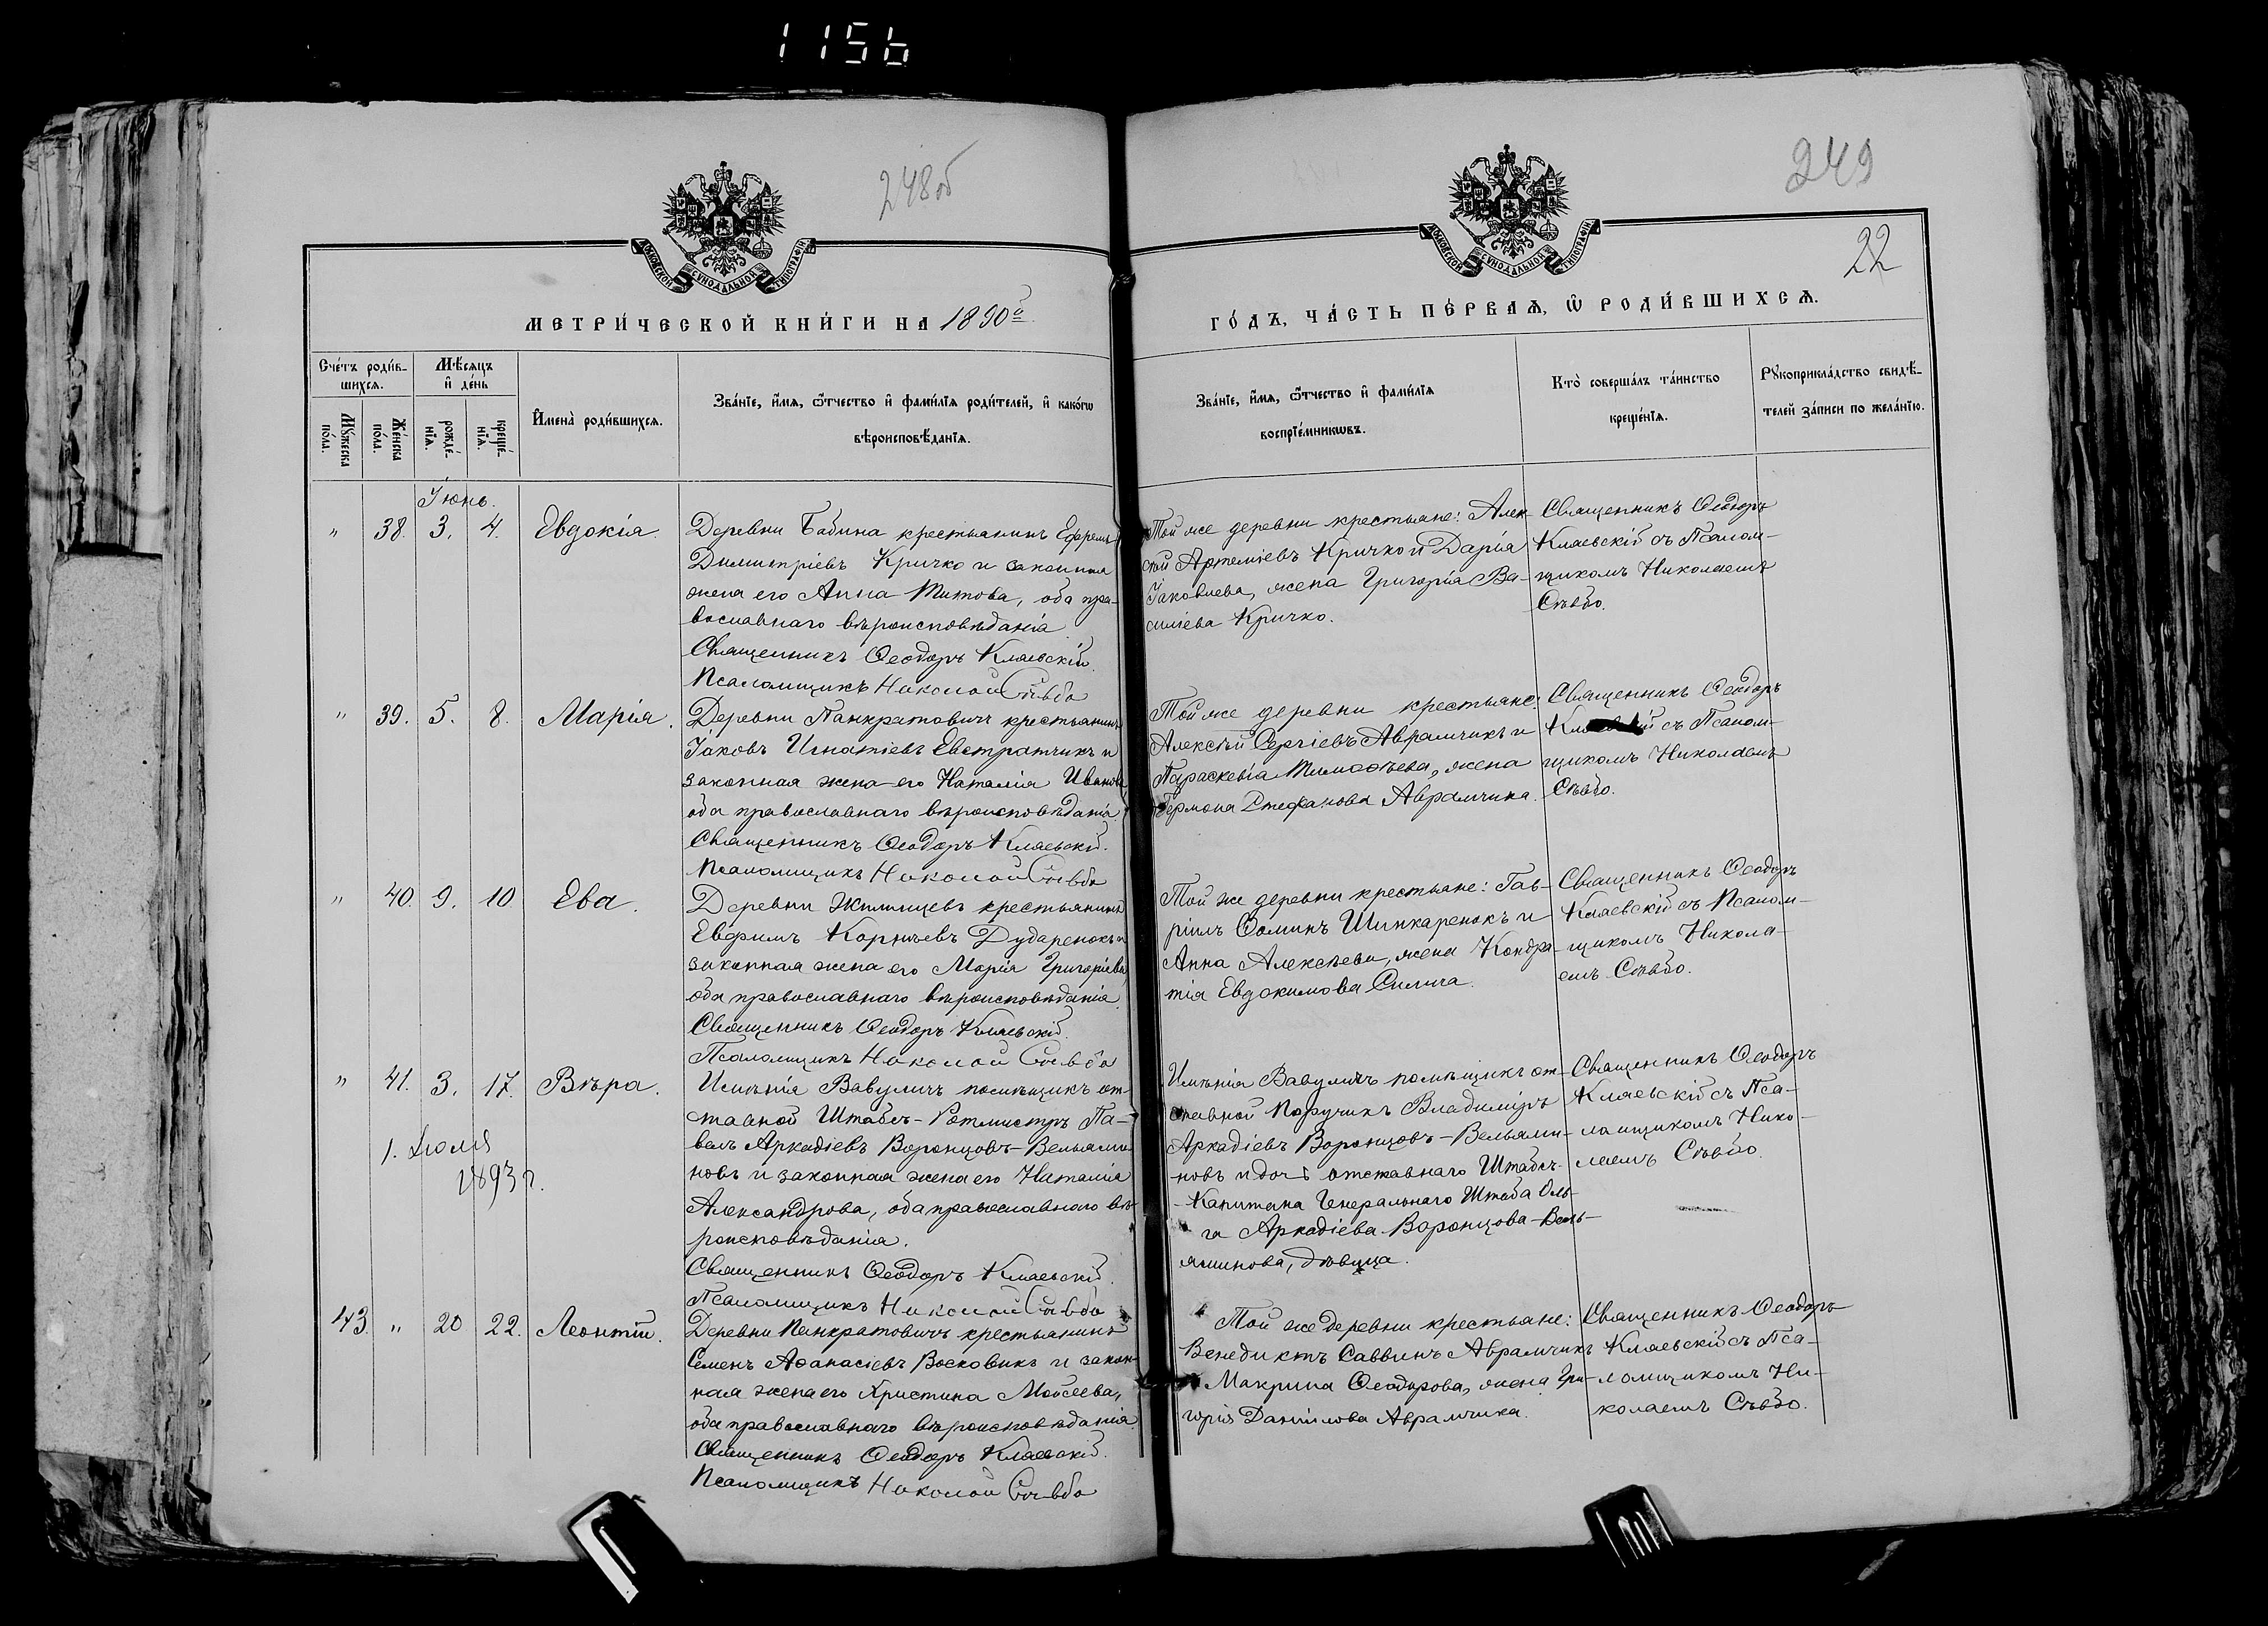 1156
248об
249
22
МОСКОВСКОЙ СѴНОДАЛЬНОЙ ТИПОГРАФІИ.
МОСКОВСКОЙ СѴНОДАЛЬНОЙ ТИПОГРАФІИ.
МЕТРИ́ЧЕСКОЙ КНИ́ГИ НА 1890й
ГО́ДЪ, ЧА́СТЬ ПЕ́РВАѦ, Ѡ҆ РОДИ́ВШИХСѦ.
Сче́тъ роди́в-
шихсѧ.
Мѣ́сѧцъ
и҆ де́нь
Мꙋ́жеска
по́ла.
Же́нска
по́ла.
рожде́-
нїѧ.
креще́-
нїѧ.
И҆мена̀ роди́вшихсѧ.
Зва́нїе, и҆́мѧ, ѻ҆́тчество и҆ фами́лїѧ роди́телей, и҆ како́гѡ
вѣроисповѣ́данїѧ.
Зва́нїе, и҆́мѧ, ѻ҆́тчество и҆ фами́лїѧ
воспрїе́мникѡвъ.
Кто̀ соверша́лъ та́инство
креще́нїѧ.
Рꙋкоприкла́дство свидѣ́-
телей за́писи по жела́нїю.
Іюнь.
" 38. 3. 4. Евдокія.
Деревни Бабина крестьянинъ Ефремъ
Димитріевъ Кричко и законная
жена его Анна Титова, оба пра-
вославнаго вѣроисповѣданія
Священникъ Ѳеодоръ Кляевскій.
Псаломщикъ Николай Сѣвбо
Той же деревни крестьяне: Алек-
сѣй Артеміевъ Кричко и Дарія
Іаковлева, жена Григорія Ва-
силіева Кричко.
Священникъ Ѳеодоръ
Кляевскій съ Псалом-
щикомъ Николаемъ
Сѣвбо.
" 39. 5. 8. Марія.
Деревни Панкратовичъ крестьянинъ
Іаковъ Игнатіевъ Евстратчикъ и
законная жена его Наталія Иванова
оба православнаго вѣроисповѣданія
Священникъ Ѳеодоръ Кляевскій.
Псаломщикъ Николай Сѣвбо
Той же деревни крестьяне:
Алексѣй Сергіевъ Аврамчикъ и
Параскевія Тимоѳѣева, жена
Гермона Стефанова Аврамчика.
Священникъ Ѳеодоръ
Кляевскій съ Псалом-
щикомъ Николаемъ
Сѣвбо.
" 40. 9. 10 Ева.
Деревни Жилинцевъ крестьянинъ
Евфимъ Корнѣевъ Дударенокъ и
законная жена его Марія Григоріева
оба православнаго вѣроисповѣданія
Священникъ Ѳеодоръ Кляевскій.
Псаломщикъ Николай Сѣвбо
Той же деревни крестьяне: Гав-
ріилъ Ѳоминъ Шинкаренокъ и
Анна Алексѣева, жена Кондра-
тія Евдокимова Силича.
Священникъ Ѳеодоръ
Кляевскій съ Псалом-
щикомъ Никола-
емъ Сѣвбо.
" 41. 3. 17. Вѣра.
1. Іюля
1893 г.
Имѣнія Вавуличъ помѣщикъ от-
ставной Штабсъ-Ротмистръ Па-
велъ Аркадіевъ Воронцовъ-Вельями-
новъ и законная жена его Наталія
Александрова, оба православнаго вѣ-
роисповѣданія.
Священникъ Ѳеодоръ Кляевскій.
Псаломщикъ Николай Сѣвбо
Имѣнія Вавуличъ помѣщикъ от-
ставной Поручикъ Владиміръ
Аркадіевъ Воронцовъ-Вельями-
новъ и дочь отставнаго Штабсъ-
-Капитана Генеральнаго Штаба Оль-
га Аркадіева Воронцова-Вель-
яминова, дѣвица.
Священникъ Ѳеодоръ
Кляевскій съ Пса-
ломщикомъ Нико-
лаемъ Сѣвбо.
43. " 20 22. Леонтій.
Деревни Панкратовичъ крестьянинъ
Семенъ Аѳанасіевъ Восковикъ и закон-
ная жена его Христина Моисеева,
оба православнаго вѣроисповѣданія
Священникъ Ѳеодоръ Кляевскій.
Псаломщикъ Николай Сѣвбо
Той же деревни крестьяне:
Венедиктъ Саввинъ Аврамчикъ
и Макрина Ѳеодорова, жена Гри-
горія Даніилова Аврамчика.
Священникъ Ѳеодоръ
Кляевскій съ Пса-
ломщикомъ Ни-
колаемъ Сѣвбо.